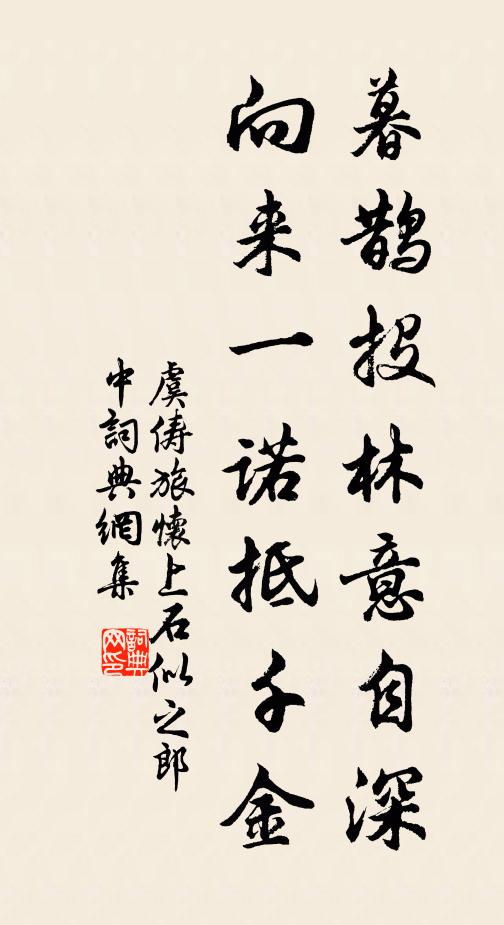 暮鹊投林意自深
向来一诺抵千金
虞俦旅懷上石似之郎
中詞典網集
詞典网印